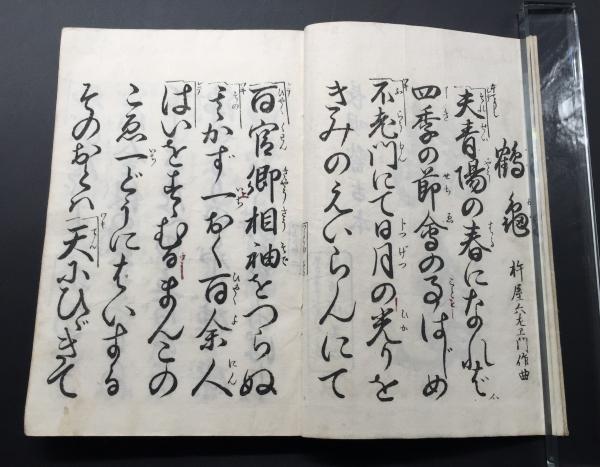 鶴亀
杵屋六左エ門作曲
夫青陽の春になれば
四季の節會の事はじめ
不老門にて日月の光りを
きみのえいらんにて
百官卿相袖をつらぬ
其かず一おく百余人
はいをすゝむるまんこの
こゑ一どうにはいする
そのおとは天にひゞきて